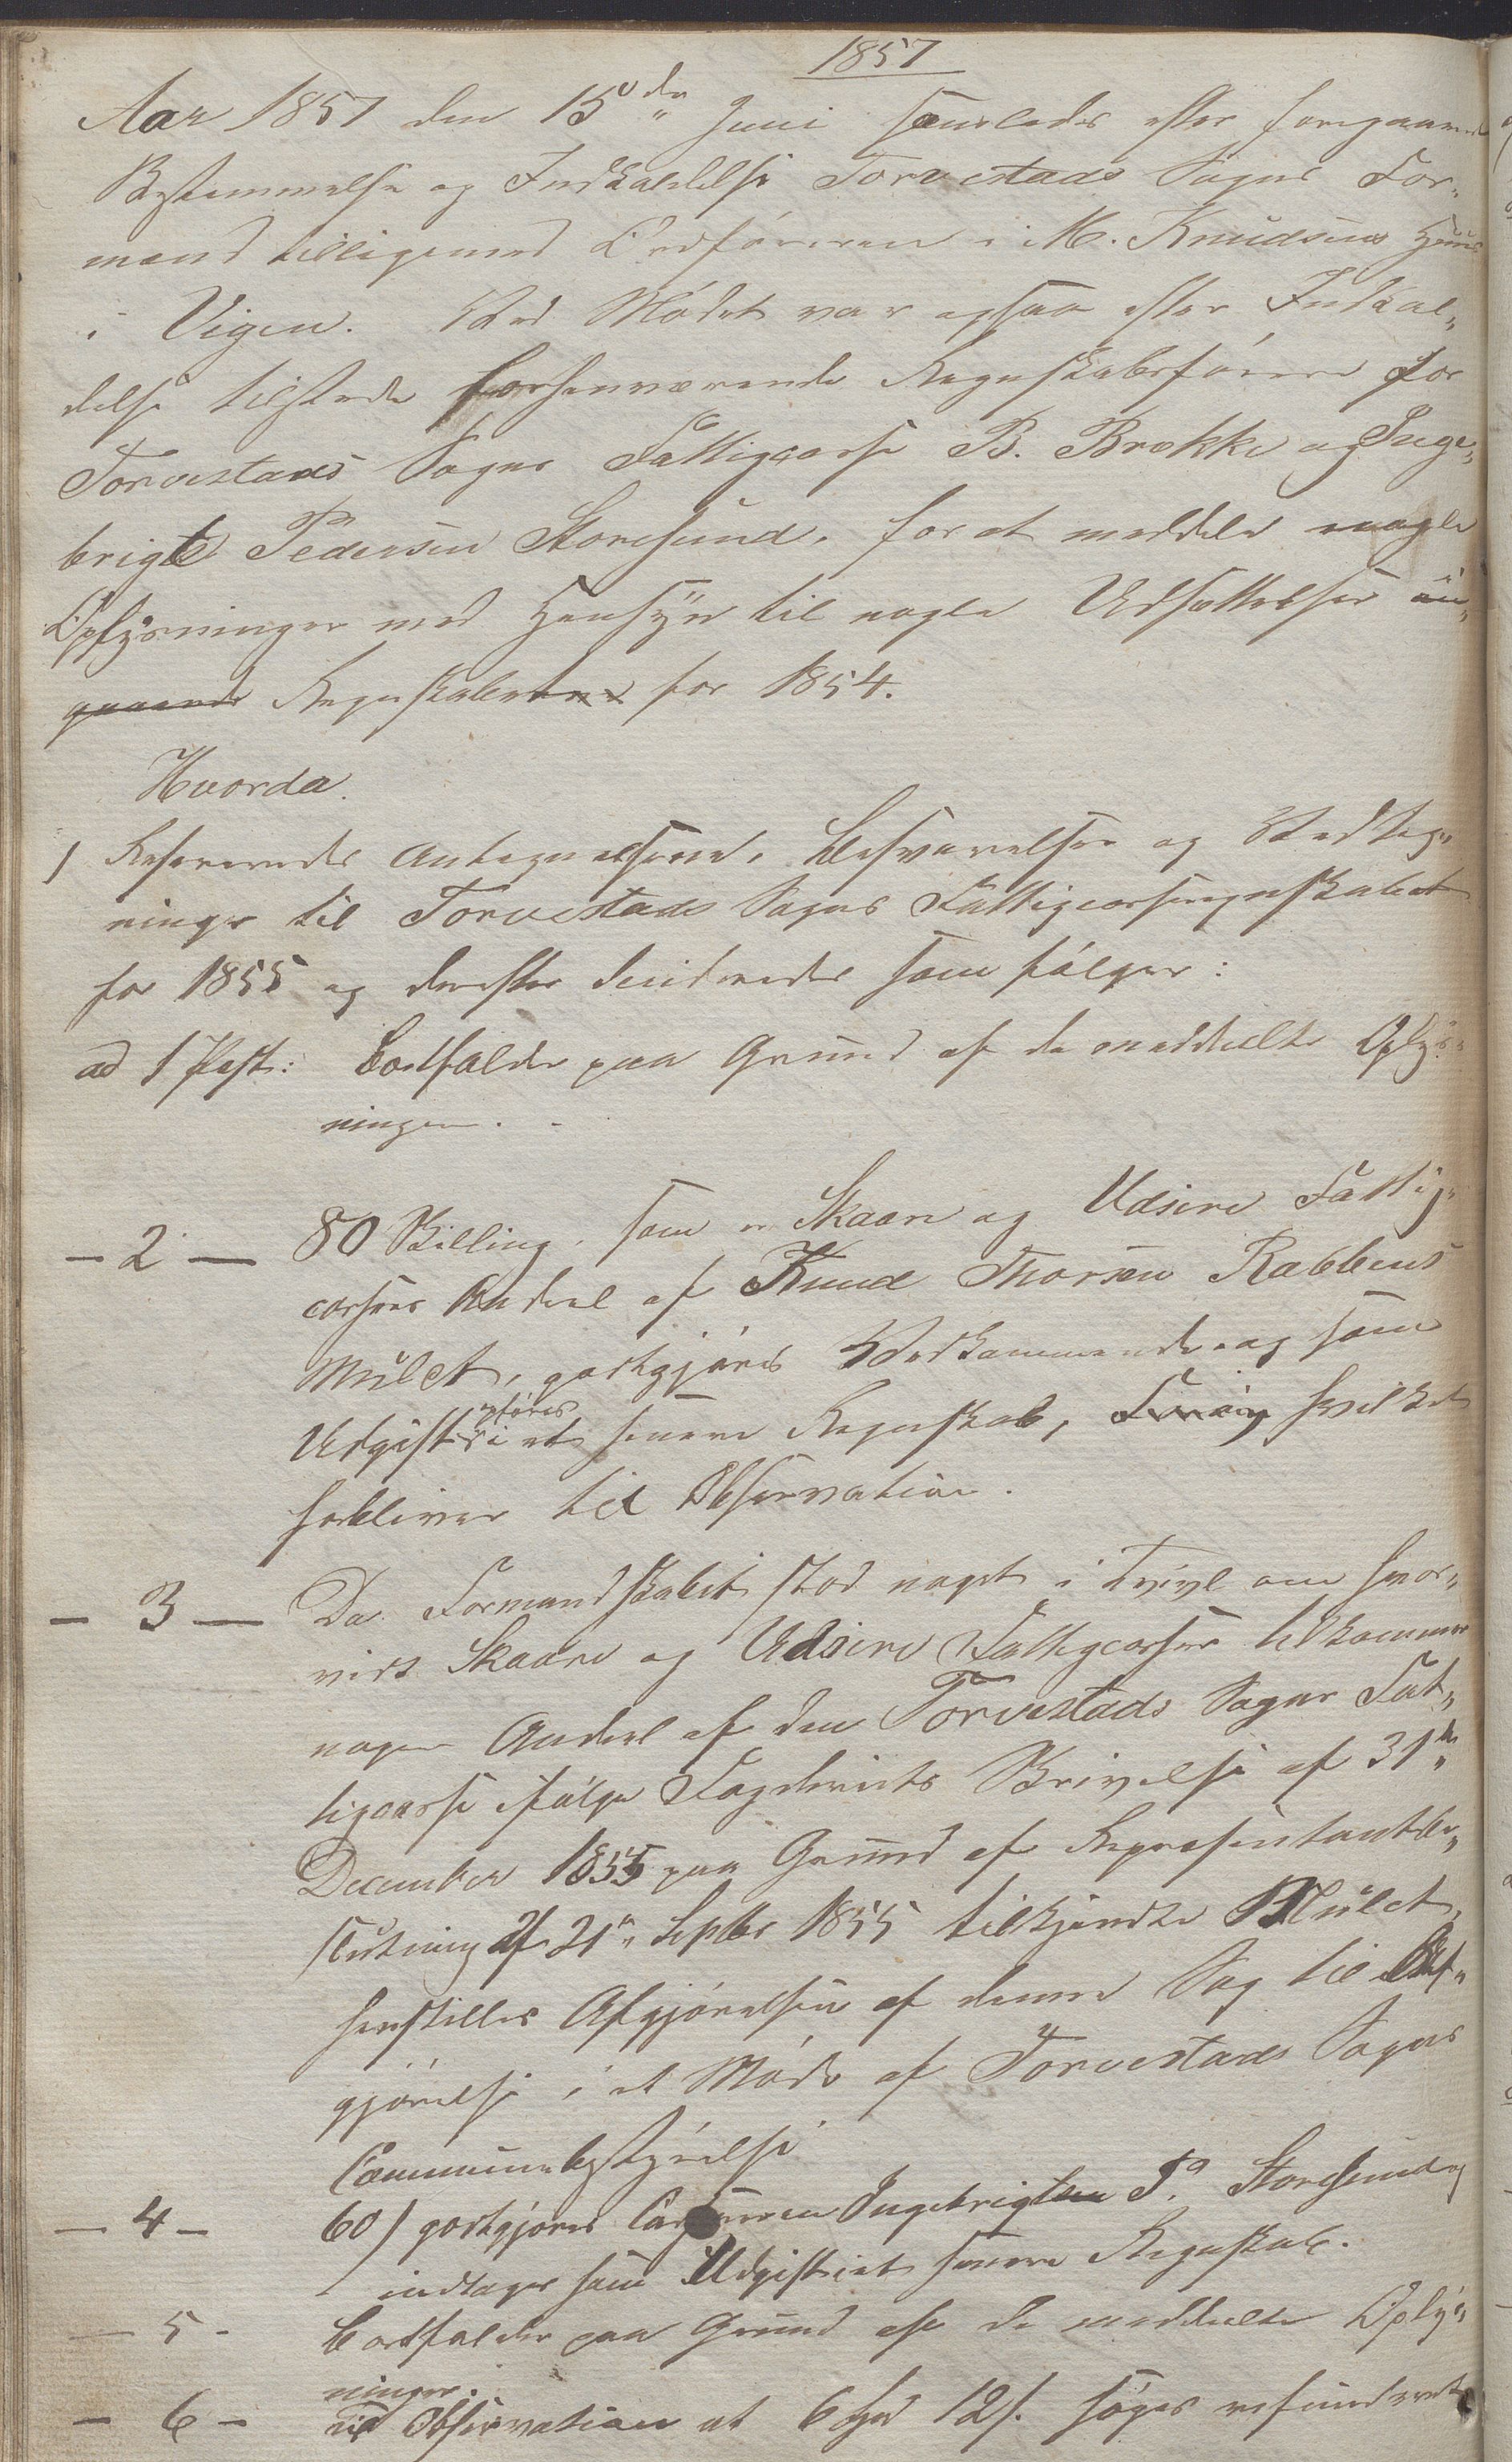 1857
Aar 1857 den 15de Juni samledes efter foregaaende
Bestemmelse og Indkaldelse Torvestads Sogns For„
mænd tilligemed Ordføreren i M. Knudsens Huus
i Vigen. Ved Mødet var ogsaa efter Indkal„
delse tilstede forhenværende Regnskabsfører for
Torvestads Sogns Fattigcasse B. Brække og Inge„
brigt Pedersen Storesund, for at meddele nogle
Oplysninger med Hensyn til nogle Udsættelser an„
gaaende Regnskabet for 1854.
Hvorda
1 Refereredes Antegnelserne, Besvarelser og Paateg„
ninger til Torvestads Sogns Fattigcasseregnskabet
for 1855 og derefter decideredes som følger:
ad 1 Post: Bortfalder paa Grund af de meddeelte Oplys„
ninger.
— 2 — 80 Skilling, som er Skaare og Udsire Fattig„
cassers Andeel af Knud Thorsen Rabbens
Mulct, godtgjøres Vedkommende og som
Udgift opføres i et senere Regnskab, hvilket
forbliver til Observation.
— 3 — Da Formandskabet stod noget i Tvivl om hvor„
vidt Skaare og Udsire Fattigcasser tilkommer
nogen Andeel af den Torvestads Sogns Fat„
tigcasse ifølge Fogderiets Skrivelse af 31te
December 1855 paa Grund af Repræsentantbe„
slutning af 21de Septbr 1855 tilkjendte Mulct,
henstilles Afgjørelsen af denne Sag til Af„
gjørelse i et Møde af Torvestads Sogns
Communebestyrelse
— 4 — 60 / godtgjøres Cassereren Ingebrigt P. Storesund og
indtages som Udgift i et senere Regnskab.
— 5 — Bortfalder paa Grund af de meddeelte Oplys„
ninger.
— 6 — Til Observation at 6 Spd 12 s. søges refunderet